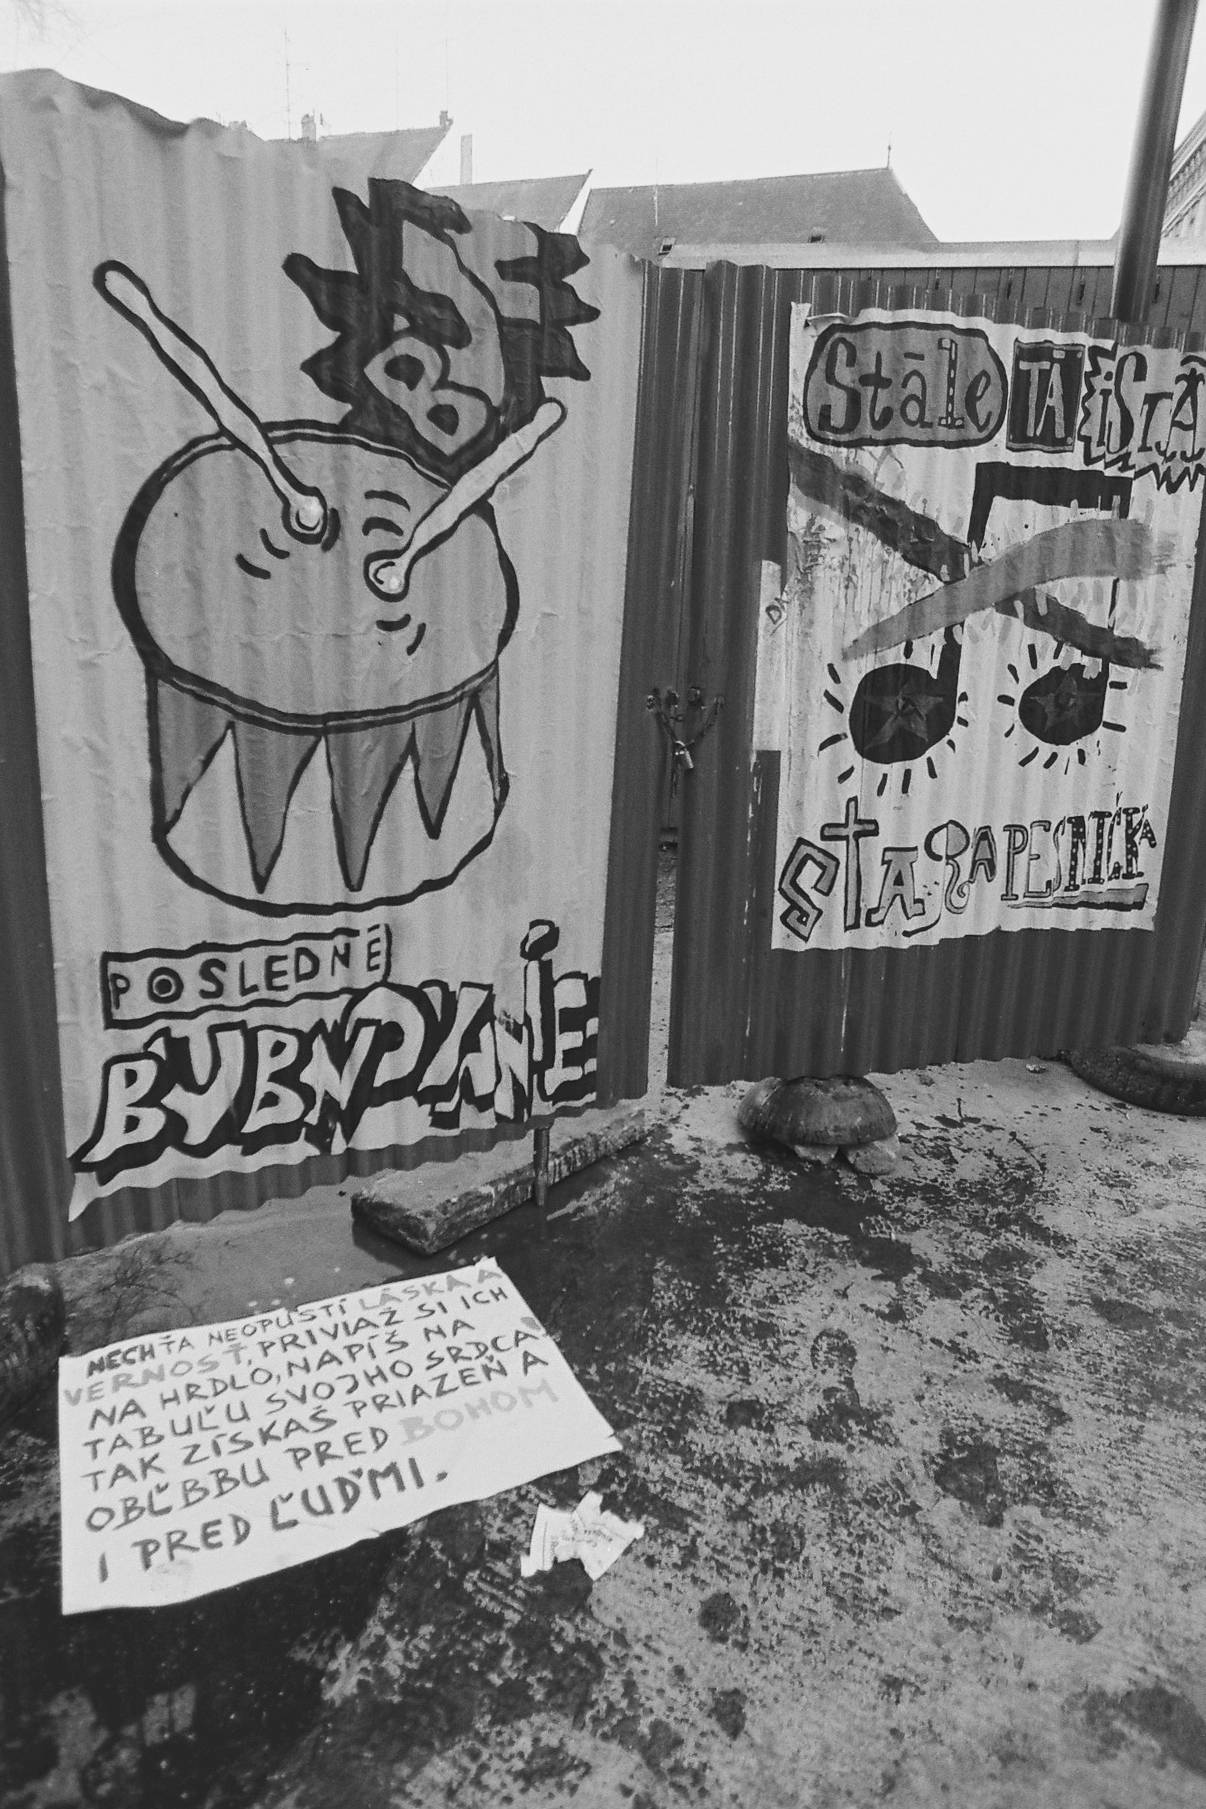 JE
BUBNOVANIE
POSLEDNÉ
Stále TÁ iSTÁ
STARA PESNIČKA
NECH ŤA NEOPUSTÍ LÁSKA A
VERNOSŤ, PRIVIAŽ SI ICH
NA HRDLO, NAPÍŠ NA
TABUĽU SVOJHO SRDCA
TAK ZÍSKAŠ PRIAZEŇ A
OBĽBBU PRED BOHOM
I PRED ĽUĎMI.